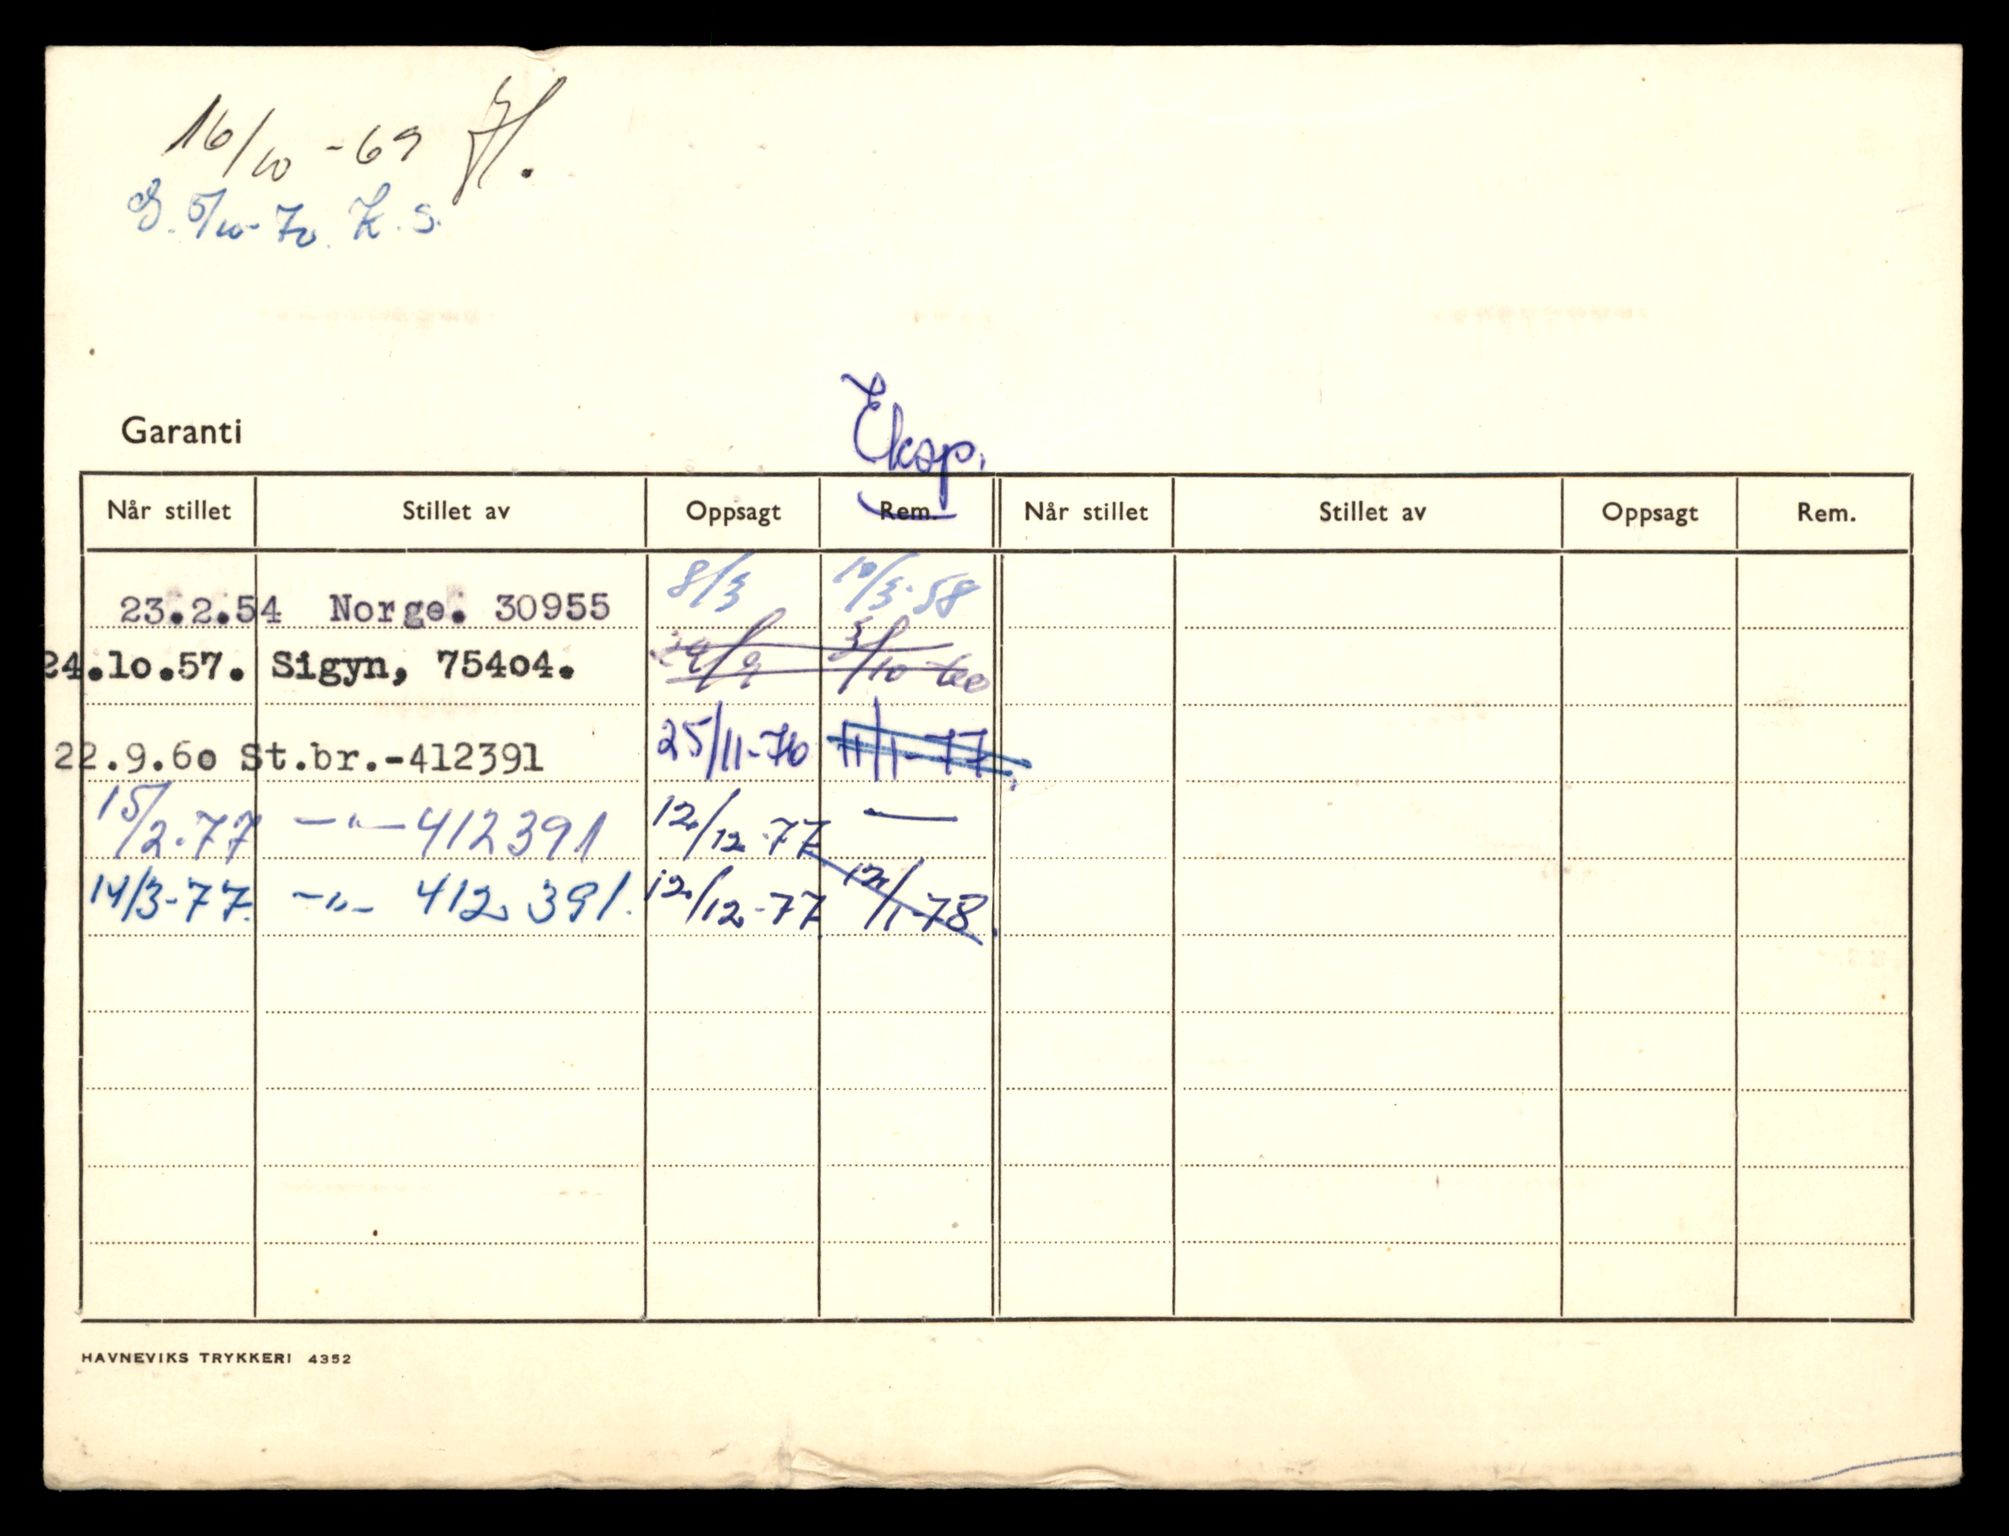 16/10 - 69 H.
G. 5/10- 70. K. S.
Eksp.
Garanti
Når stillet Stillet av Oppsagt Rem. Når stillet Stillet av Oppsagt Rem.
8/3 10/3-58
23.2.54 Norge. 30955
29/9 3/10-60
24.1o.57. Sigyn, 754o4.
22.9.6o St.br.-412391 25/11-76 11/1-77.
15/2-77 -"- 412391 12/12-77 —
14/3-77. -"- 412391. 12/12-77 12/1-78.
HAVNEVIKS TRYKKERI 4352